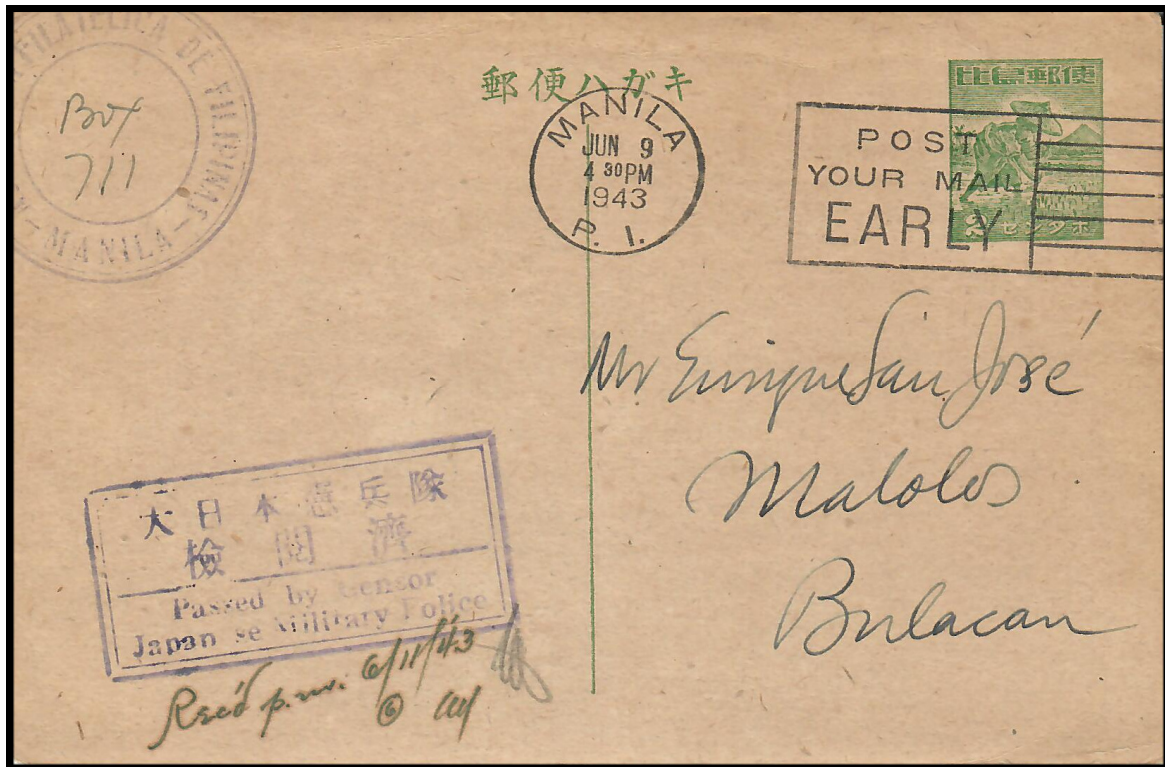 FILATELICA DE FILIPINAS
- MANILA -
Box
711
郵便ハガキ
MANILA
JUN 9
4 30PM
1943
P. I.
比島郵便
2 センタボ
POST
YOUR MAIL
EARLY
Mr Enrique San José
Malolos
Bulacan
大日本憲兵隊
檢閲濟
Passed by Censor
Japanese Military Police
Rec'd p.m. 6/11/43